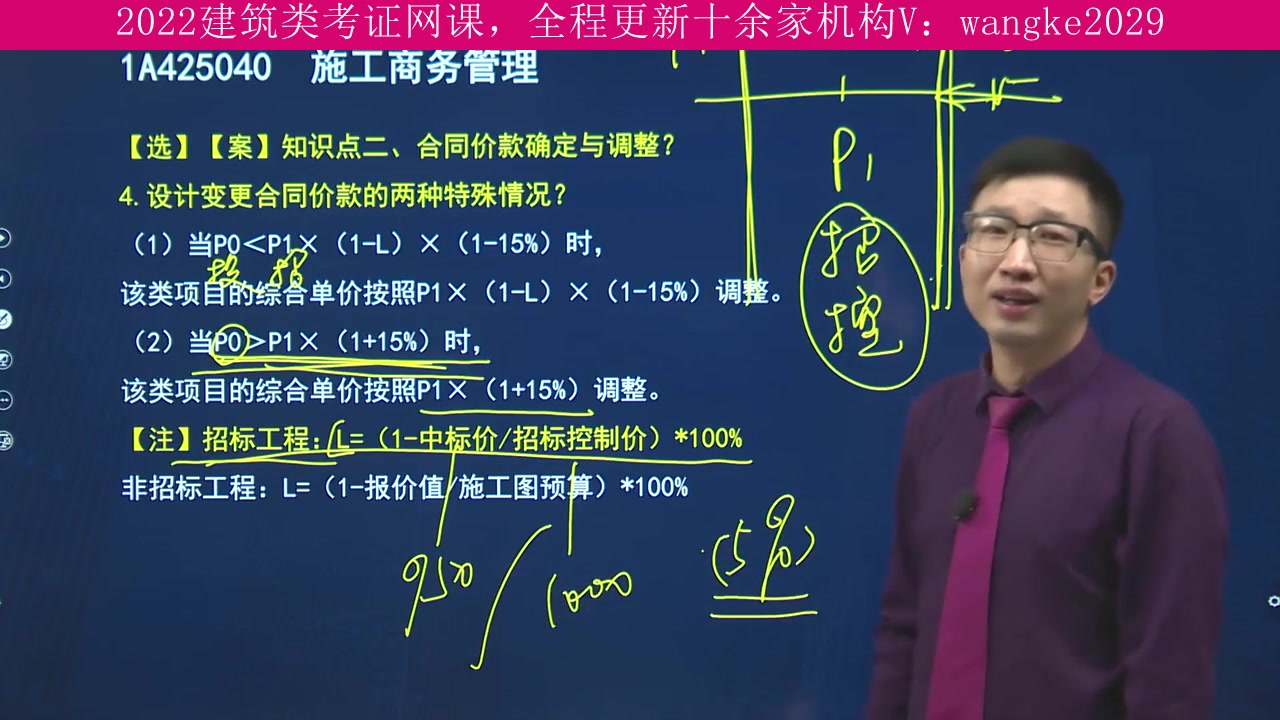 2022建筑类考证网课，全程更新十余家机构V：wangke2029
1A425040 施工商务管理
【选】【案】知识点二、合同价款确定与调整？
4.设计变更合同价款的两种特殊情况？
（1）当P0＜P1×（1-L）×（1-15%）时，
投 招
该类项目的综合单价按照P1×（1-L）×（1-15%）调整。
（2）当P0＞P1×（1+15%）时，
该类项目的综合单价按照P1×（1+15%）调整。
【注】招标工程：L=（1-中标价/招标控制价）*100%
非招标工程：L=（1-报价值/施工图预算）*100%
P1
招
控
950
1000
(5%)